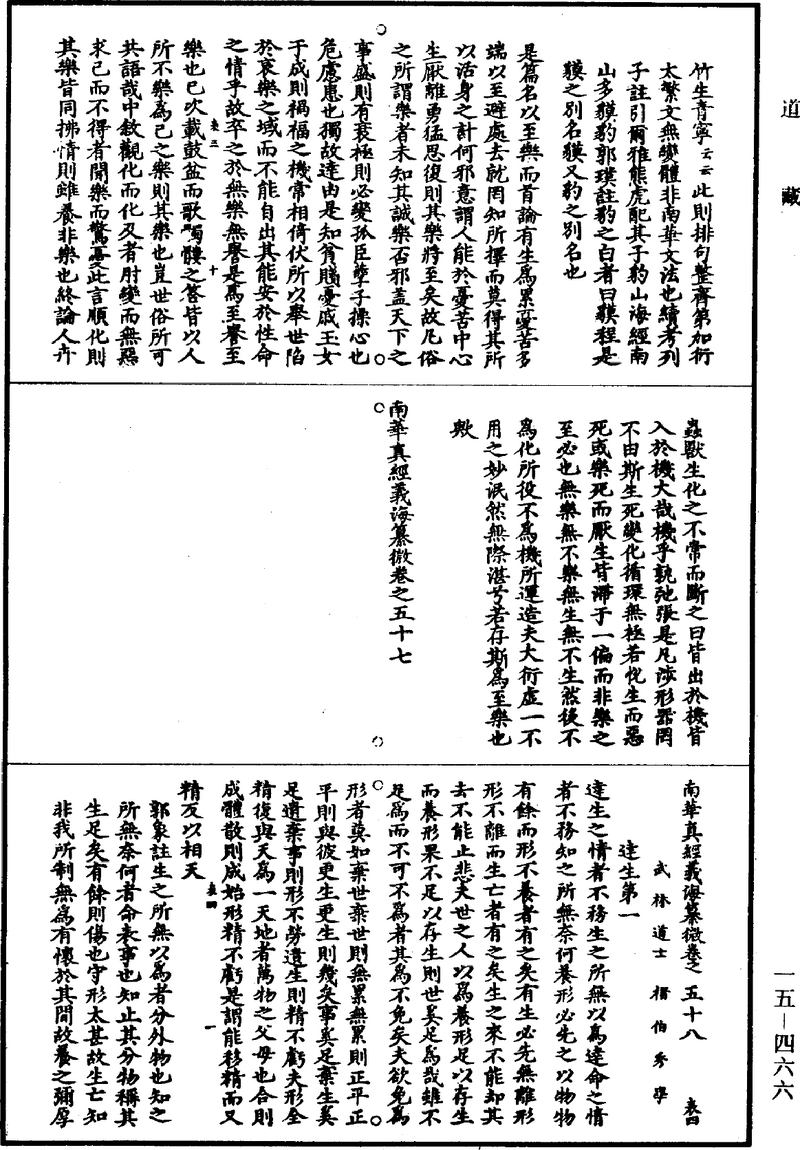 道藏
竹生青寧云云此則排句整齊第加衍
太繁文無變體非南華文法也續考列
子註引爾雅熊虎配其子豹山海經南
山多貘豹郭璞註豹之白者曰貘程是
貘之别名貘又豹之别名也
是篇名以至樂而首論有生為累憂苦多
端以至避處去就罔知所擇而莫得其所
以活身之計何邪意謂人能於憂苦中心
生厭離勇猛思復則其樂將至矣故凡俗
之所謂樂者未知其誠樂否邪蓋天下之
事盛則有衰極則必變孤臣孽子操心也
危慮患也獨故達由是知貧賤憂戚玉女
于成則禍福之機常相倚伏所以舉世陷
於哀樂之域而不能自出其能安於性命
之情乎故卒之於無樂無譽是為至譽至
表三
十
樂也已次載鼓盆而歌髑髏之答皆以人
所不樂為己之樂則其樂也豈世俗所可
共語哉中敘觀化而化及者肘變而無惡
求己而不得者聞樂而驚憂此言順化則
其樂皆同拂情則雖養非樂也終論人卉
蟲獸生化之不常而斷之曰皆出於機皆
入於機大哉機乎孰弛張是凡涉形器罔
不由斯生死變化循環無極若悅生而惡
死或樂死而厭生皆滯于一偏而非樂之
至必也無樂無不樂無生無不生然後不
為化所役不為機所運造夫大衍虛一不
用之妙泯然無際湛兮若存斯為至樂也
歟
南華真經義海纂微卷之五十七
南華真經義海纂微卷之五十八
表四
武林道士褚伯秀學
達生第一
達生之情者不務生之所無以為達命之情
者不務知之所無奈何養形必先之以物物
有餘而形不養者有之矣有生必先無離形
形不離而生亡者有之矣生之來不能却其
去不能止悲夫世之人以為養形足以存生
而養形果不足以存生則世奚足為哉雖不
足為而不可不為者其為不免矣夫欲免為
形者莫如棄世棄世則無累無累則正平正
平則與彼更生更生則幾矣事奚足棄生奚
足遺棄事則形不勞遺生則精不虧夫形全
精復與天為一天地者萬物之父母也合則
成體散則成始形精不虧是謂能移精而又
表四
一
精反以相天
郭象註生之所無以為者分外物也知之
所無奈何者命表事也知止其分物稱其
生足矣有餘則傷也守形太甚故生亡知
非我所制無為有懷於其間故養之彌厚
一五—四六六